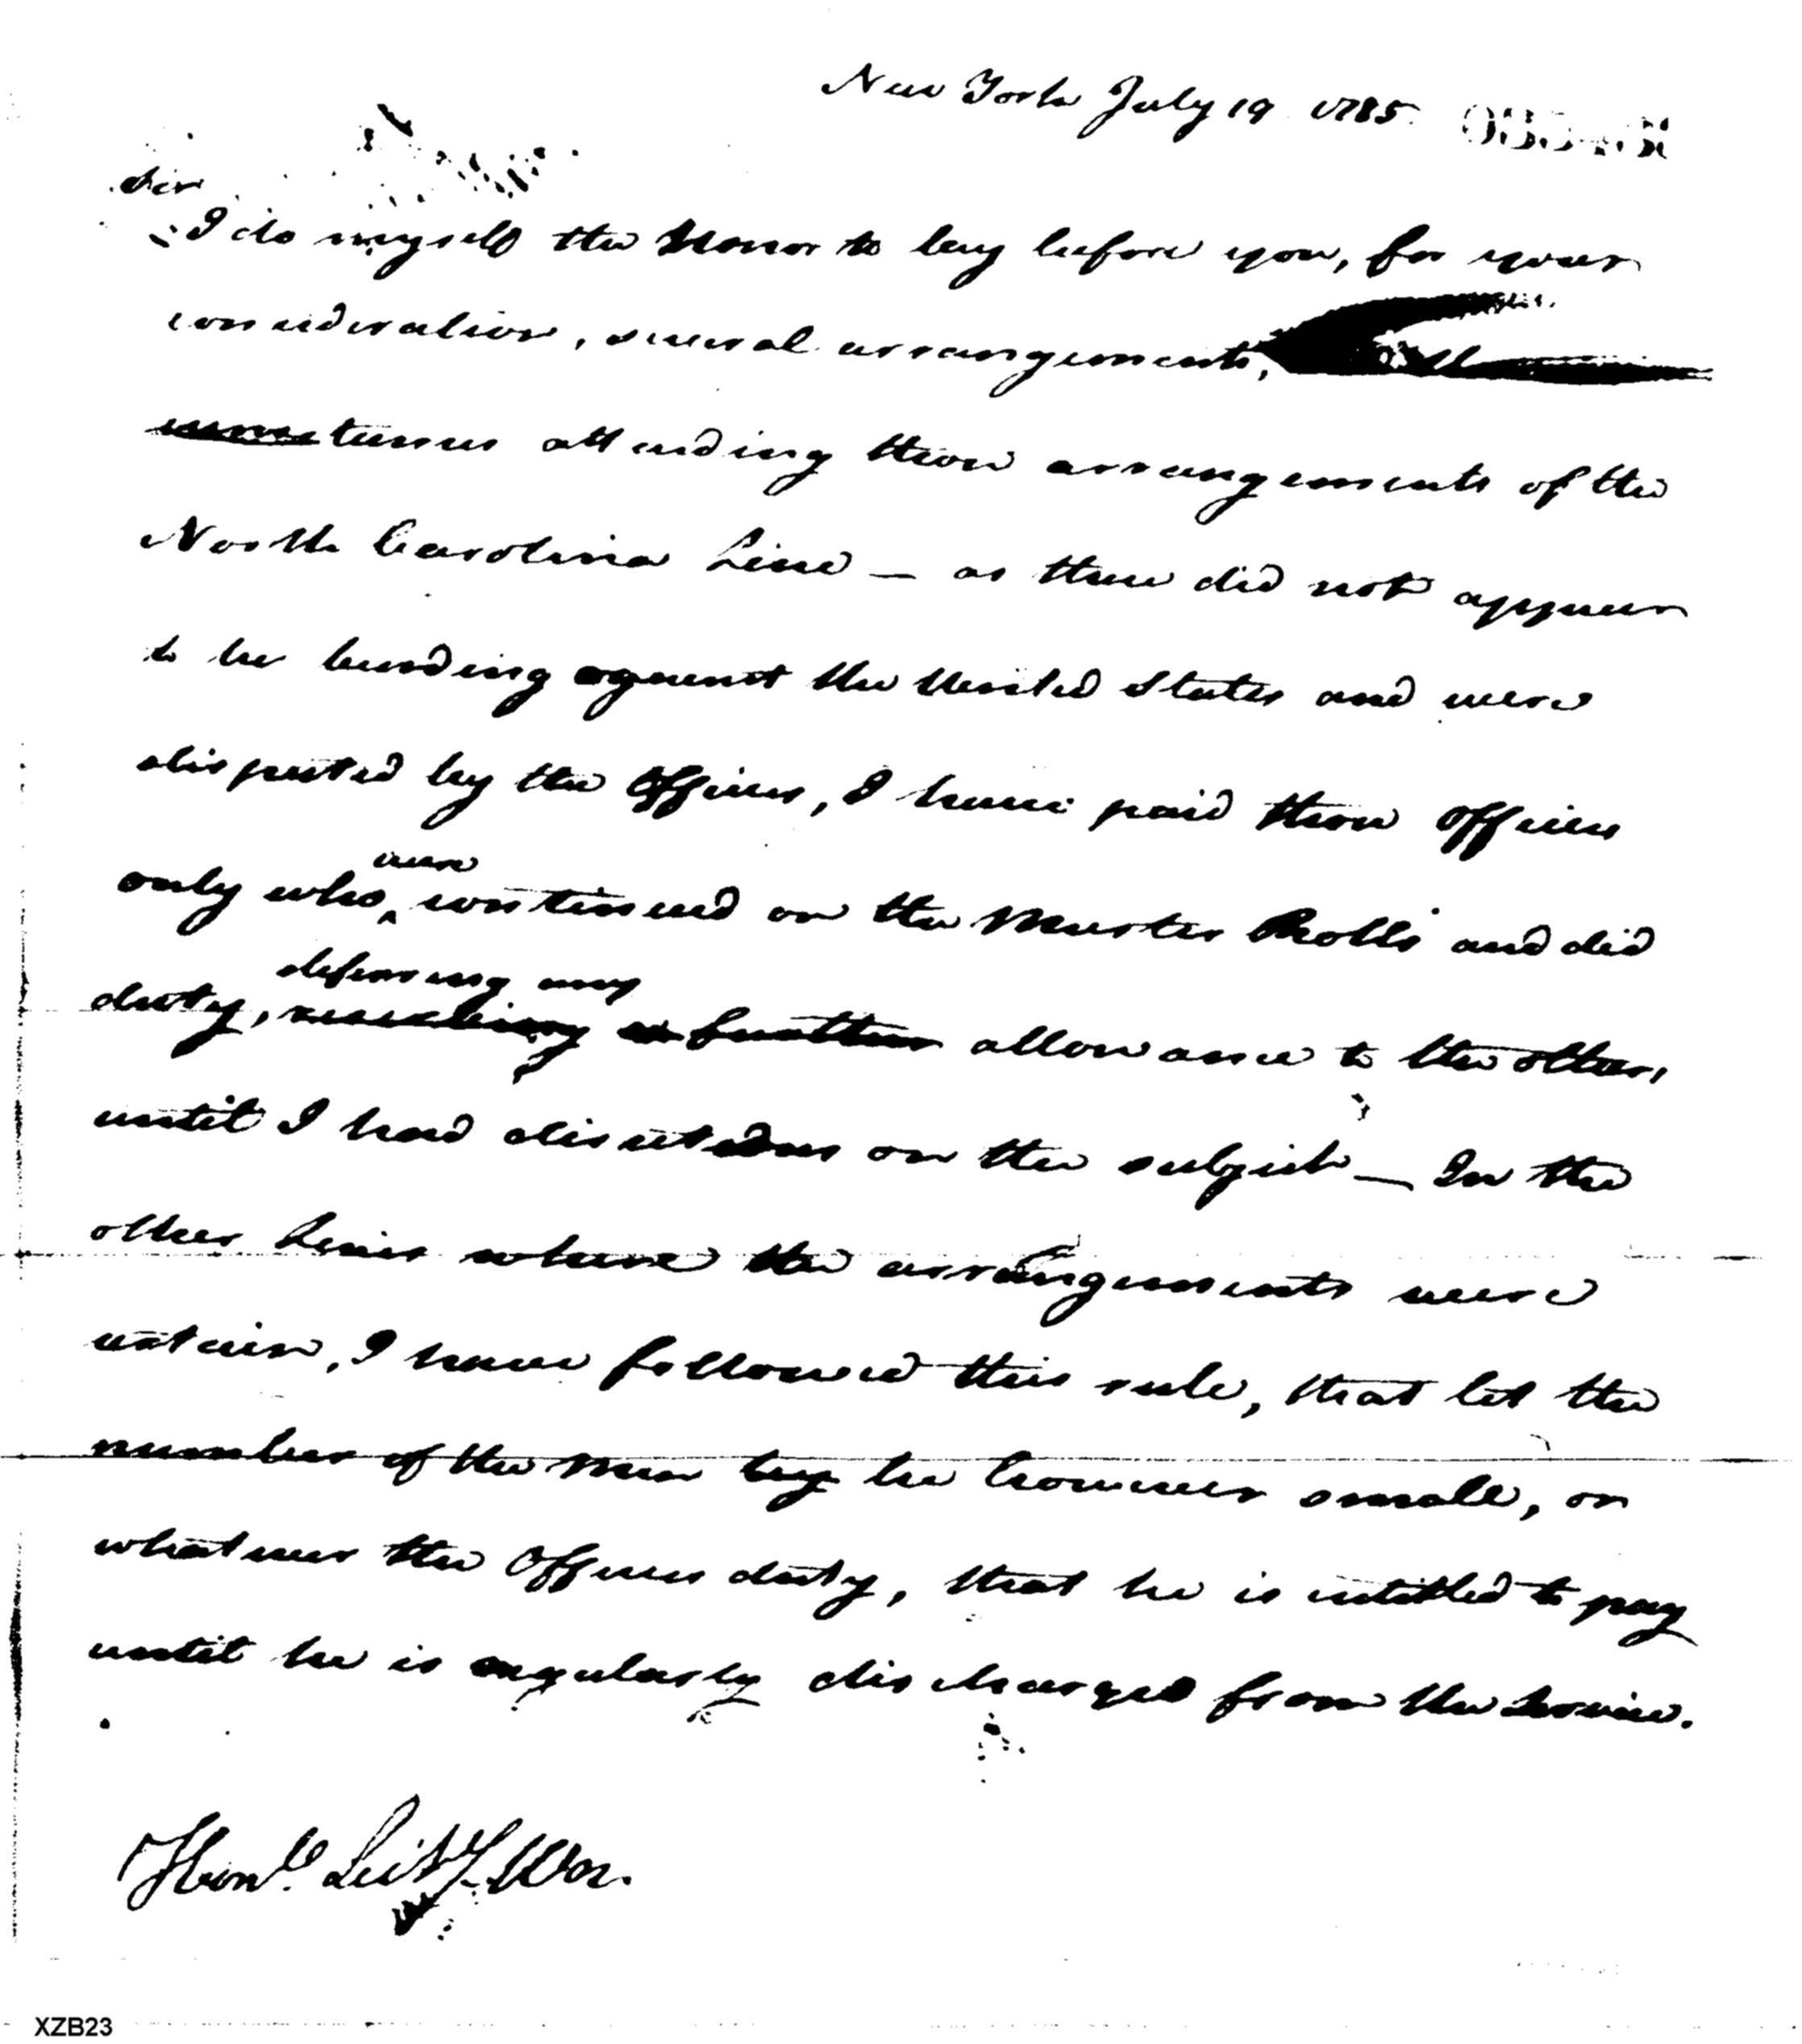 New York July 19 1785.
Sir
I do myself the Honor to lay before you, for your
consideration, several arrangements,
attending those arrangements of the
North Carolina Line — as these did not appear
to be binding against the United States and were
disputed by the Officers, I have paid those officers
only who were continued on the Muster Rolls and did
duty, defering any allowance to the others,
until I had directions on the subject — In the
other lines where the arrangements were
certain, I have followed this rule, that let the
number of the Men be however small, or
whatever the Officers duty, that he is intitled to pay
until he is regularly discharged from the service.
Honble Secty War.
XZB23